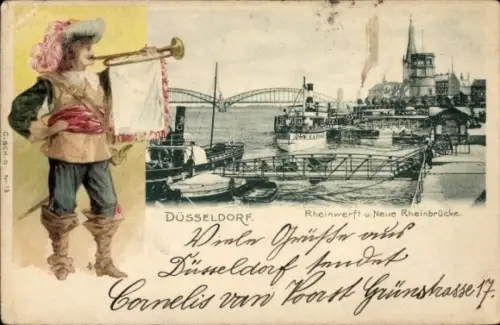 DÜSSELDORF.
Rheinwerft u. Neue Rheinbrücke.
Viele Grüße aus
Düsseldorf sendet
Cornelis van Voorst Grünstrasse 17.